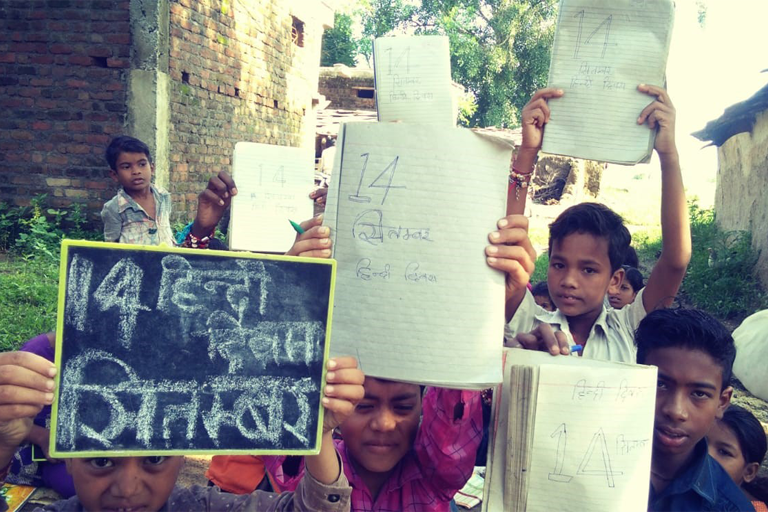 14 हिन्दी
दिवस
सितम्बर
14
सितम्बर
हिन्दी दिवस
14
सितम्बर
हिन्दी दिवस
14
सितम्बर
हिन्दी दिवस
14
हिन्दी दिवस
14 सितम्बर